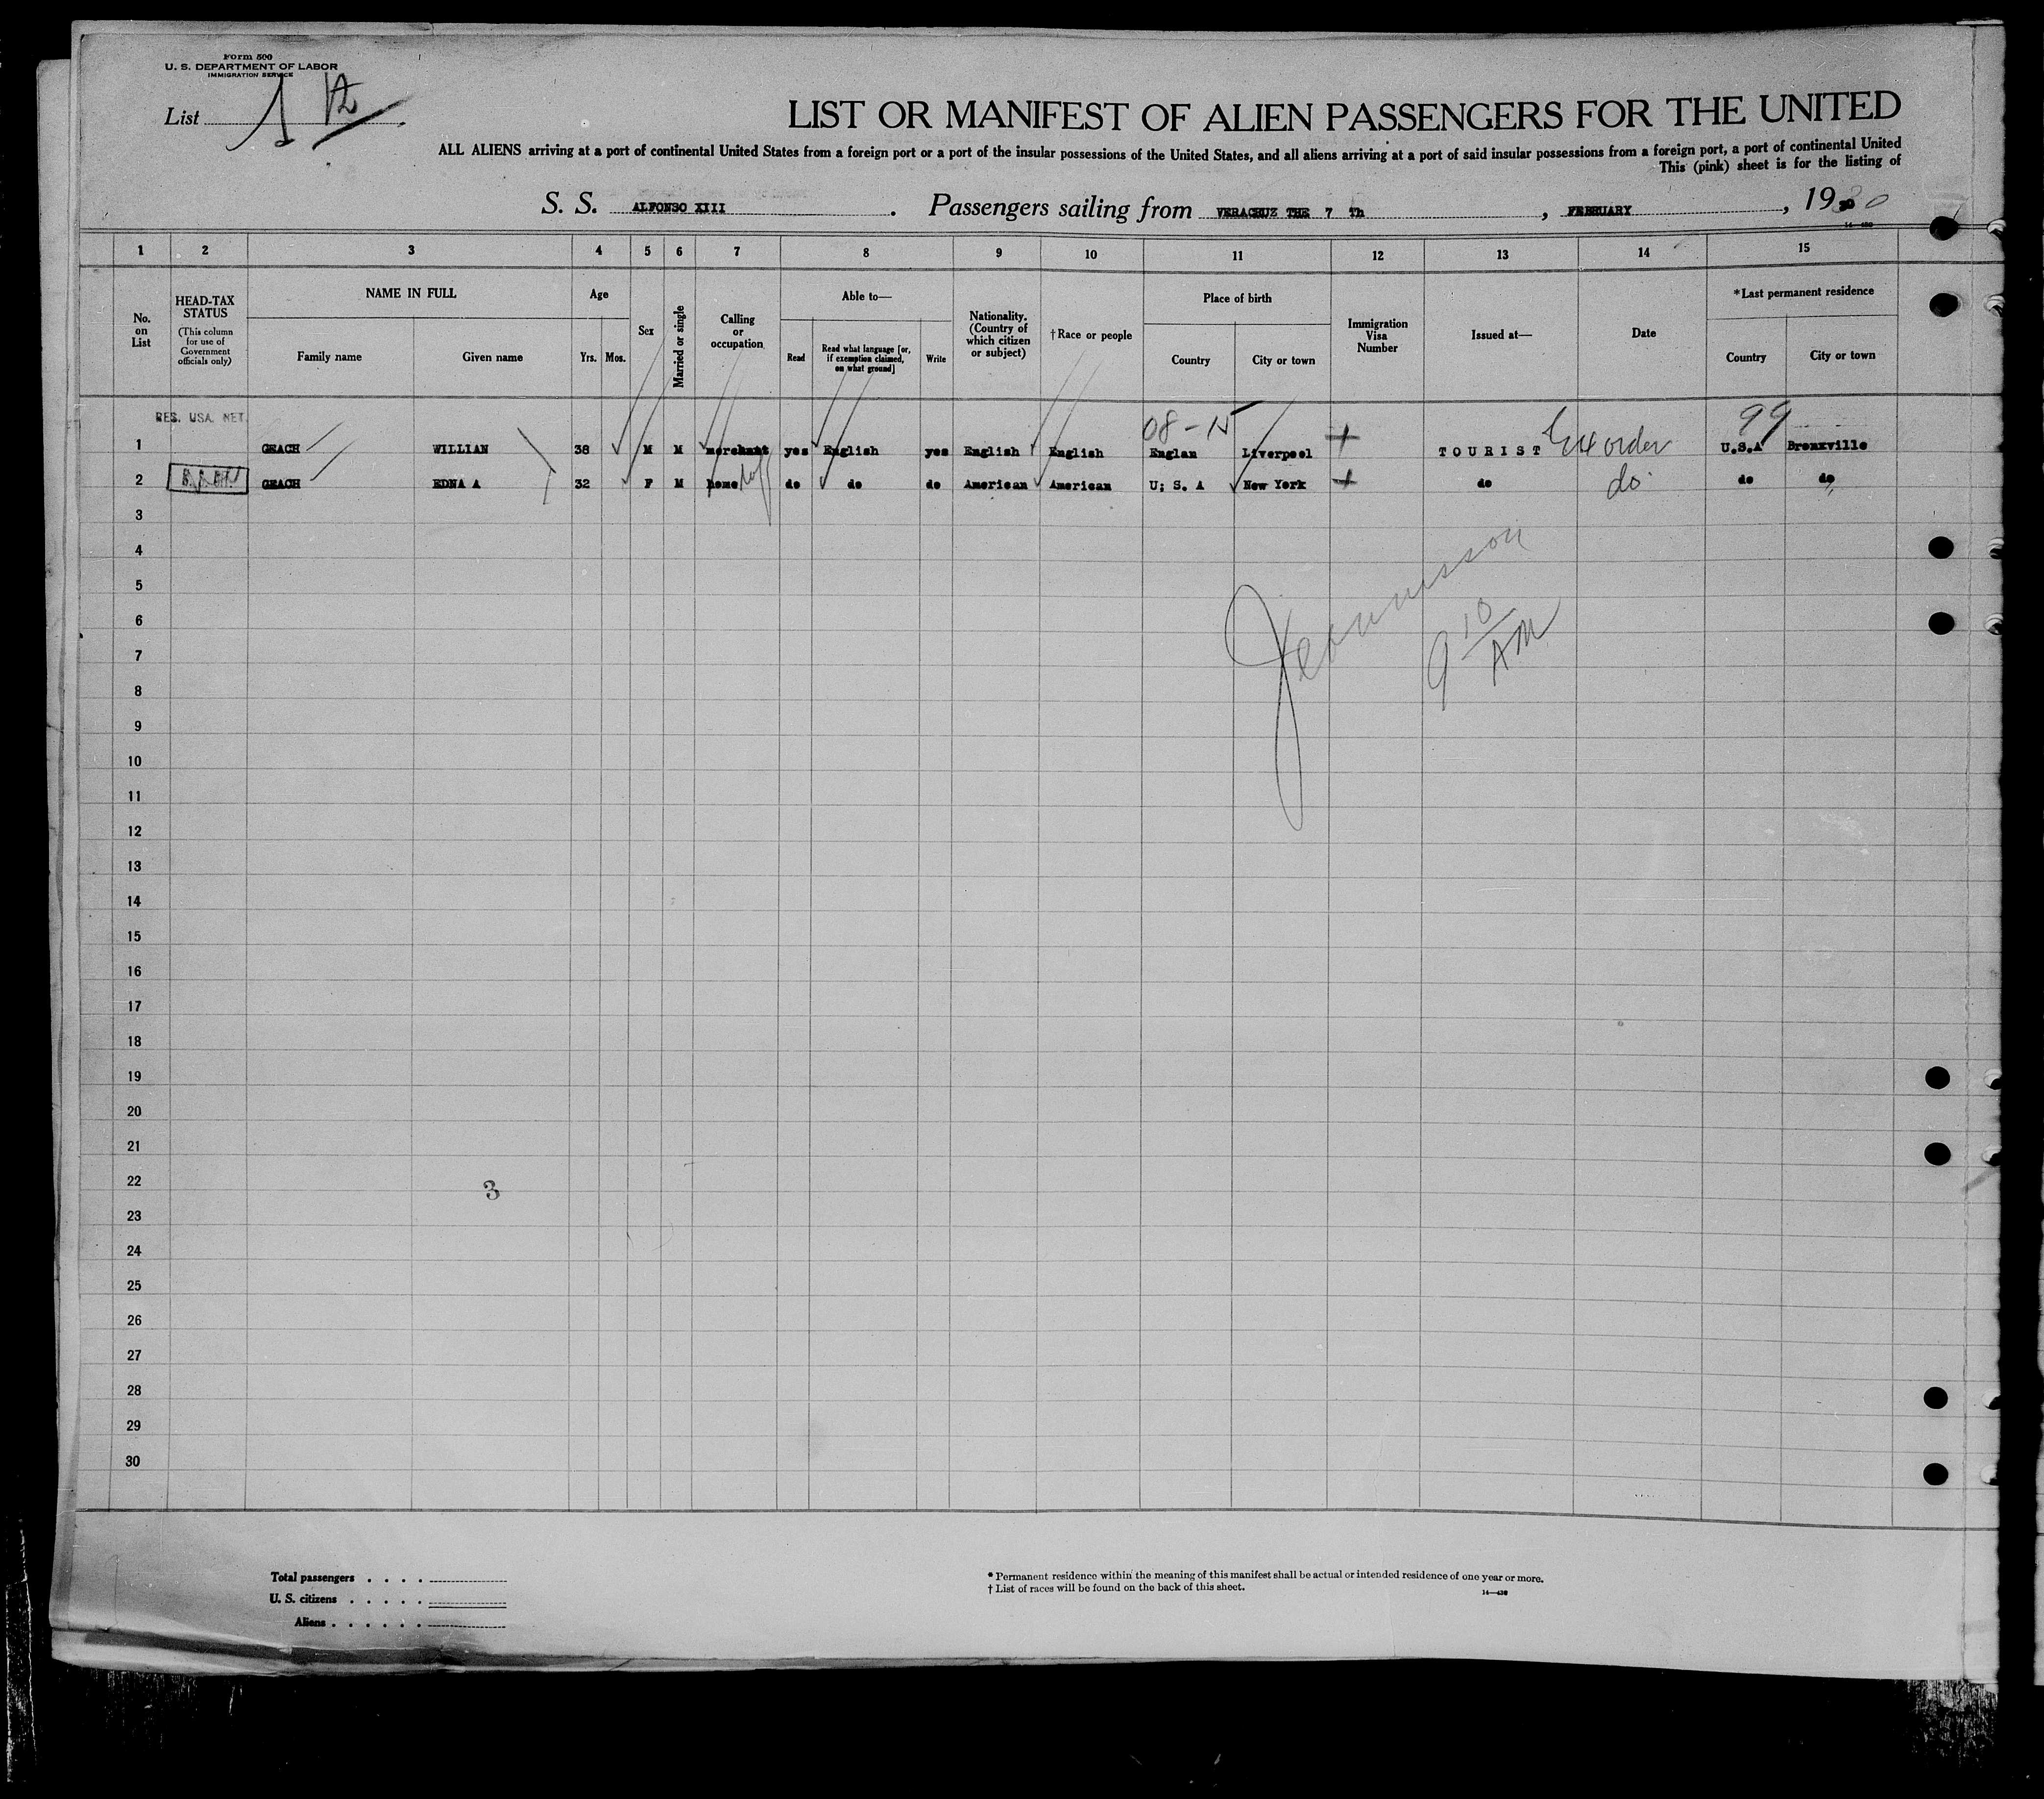 Form 500
U. S. DEPARTMENT OF LABOR
IMMIGRATION SERVICE
List 1
LIST OR MANIFEST OF ALIEN PASSENGERS FOR THE UNITED
ALL ALIENS arriving at a port of continental United States from a foreign port or a port of the insular possessions of the United States, and all aliens arriving at a port of said insular possessions from a foreign port, a port of continental United
This (pink) sheet is for the listing of
S. S. ALFONSO XIII . Passengers sailing from VERACRUZ THE 7 Th , FEBRUARY , 1930
1 2 3 4 5 6 7 8 9 10 11 12 13 14 15
No. on List
HEAD-TAX STATUS (This column for use of Government officials only)
NAME IN FULL
Family name Given name
Age
Yrs. Mos.
Sex
Married or single
Calling or occupation
Able to—
Read
Read what language [or, if exemption claimed, on what ground]
Write
Nationality. (Country of which citizen or subject)
†Race or people
Place of birth
Country City or town
Immigration Visa Number
Issued at—
Date
*Last permanent residence
Country City or town
RES. USA. NET. 08-15 99
1 GEACH WILLIAN 38 M M merchant yes English yes English English Englan Liverpool TOURIST order U.S.A Bronxville
2 GEACH EDNA A 32 F M home do do do American American U; S. A New York do do do do
3
4
5
6
7
8
9
10
11
12
13
14
15
16
17
18
19
20
21
22
23
24
25
26
27
28
29
30
9 10 AM
3
Total passengers . . . .
U. S. citizens . . . . .
Aliens . . . . . .
* Permanent residence within the meaning of this manifest shall be actual or intended residence of one year or more.
† List of races will be found on the back of this sheet.
14—430